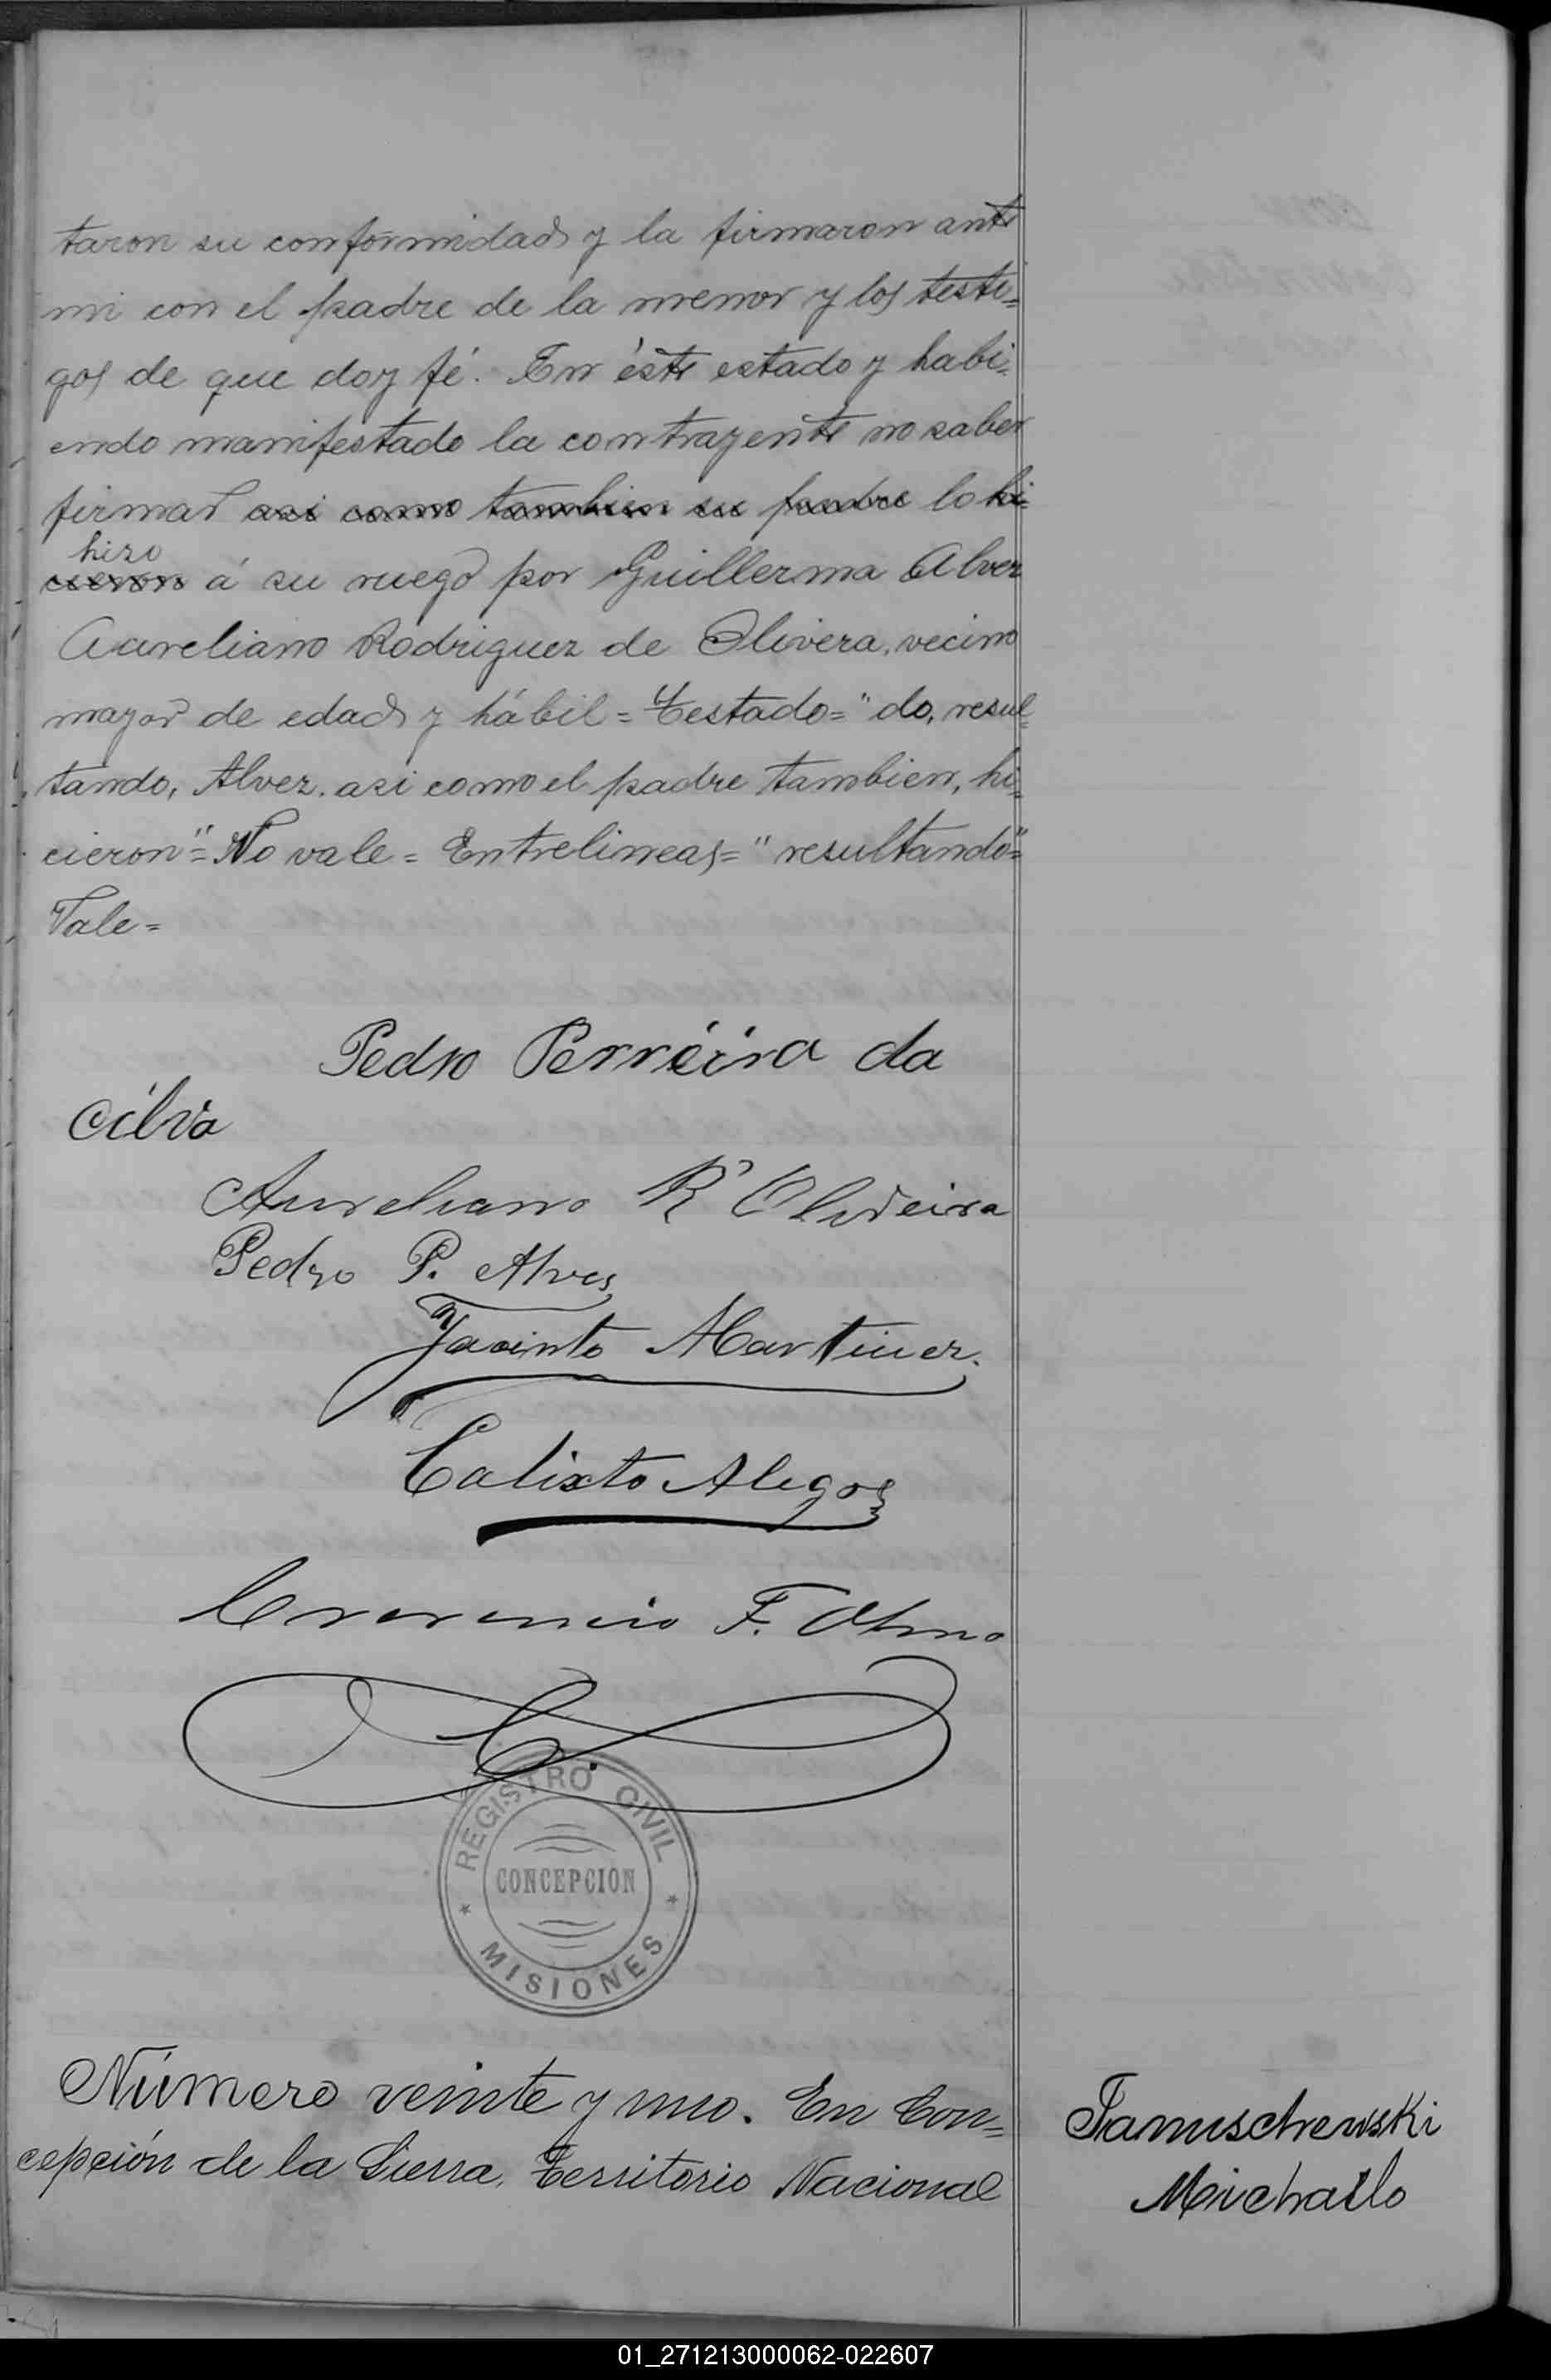 taron su conformidad y la firmaron ante
mi con el padre de la menor y los testi=
gos de que doy fé. En éste estado y habi=
endo manifestado la contrayente no saber
firmar asi como tambien su padre lo hi=
hizo
cieron á su ruego por Guillerma Alvez
Aureliano Rodriguez de Olivera, vecino
mayor de edad y hábil = Testado = "do, resul=
tando, Alvez. asi como el padre tambien, hi=
cieron" = No vale = Entrelineas = "resultando" =
Vale =
Pedro Perreira da
Cilva
Aureliano R Oliveira
Pedro P. Alves
Jacinto Martinez.
Calixto Alegos
F. Olmo
REGISTRO CIVIL
CONCEPCION
MISIONES
Número veinte y uno. En Con=
cepción de la Sierra, Territorio Nacional
Januschewski
Michailo
01_271213000062-022607